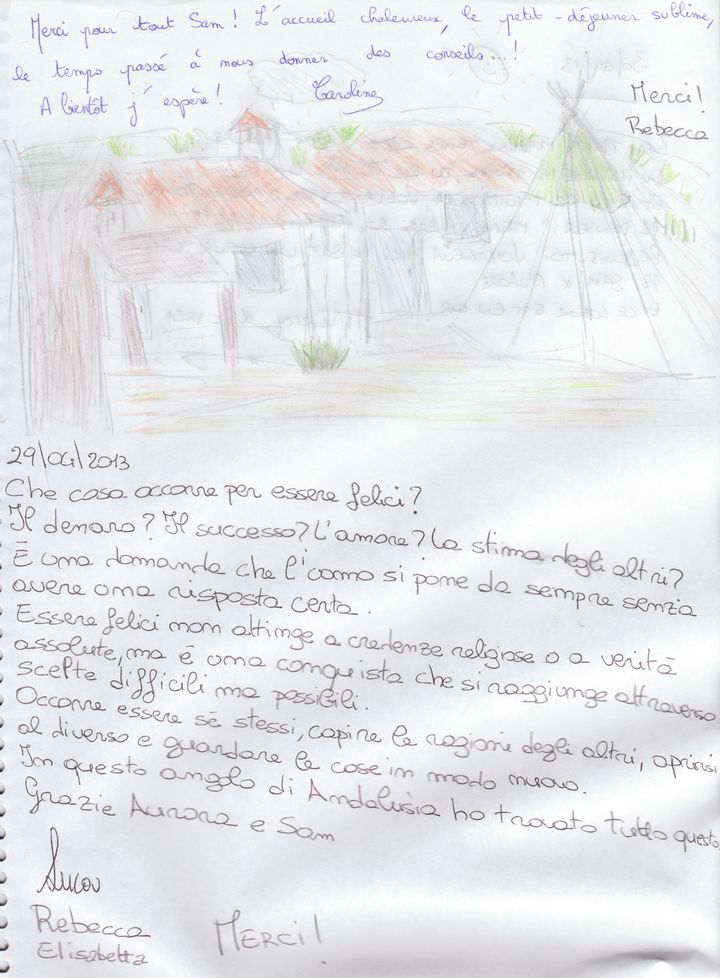 Merci pour tout Sam ! L'accueil chaleureux, le petit-déjeuner sublime,
le temps passé à nous donner des conseils...!
A bientôt j'espère !
Caroline
Merci!
Rebecca
29/04/2013
Che cosa occorre per essere felici?
Il denaro? Il successo? L'amore? La stima degli altri?
È una domanda che l'uomo si pone da sempre senza
avere una risposta certa.
Essere felici non attinge a credenze religiose o a verità
assolute, ma è una conquista che si raggiunge attraverso
scelte difficili ma possibili.
Occorre essere sé stessi, capire le ragioni degli altri, aprirsi
al diverso e guardare le cose in modo nuovo.
In questo angolo di Andalusia ho trovato tutto questo,
Grazie Aurora e Sam
Rebecca
Elisabetta
MERCI!